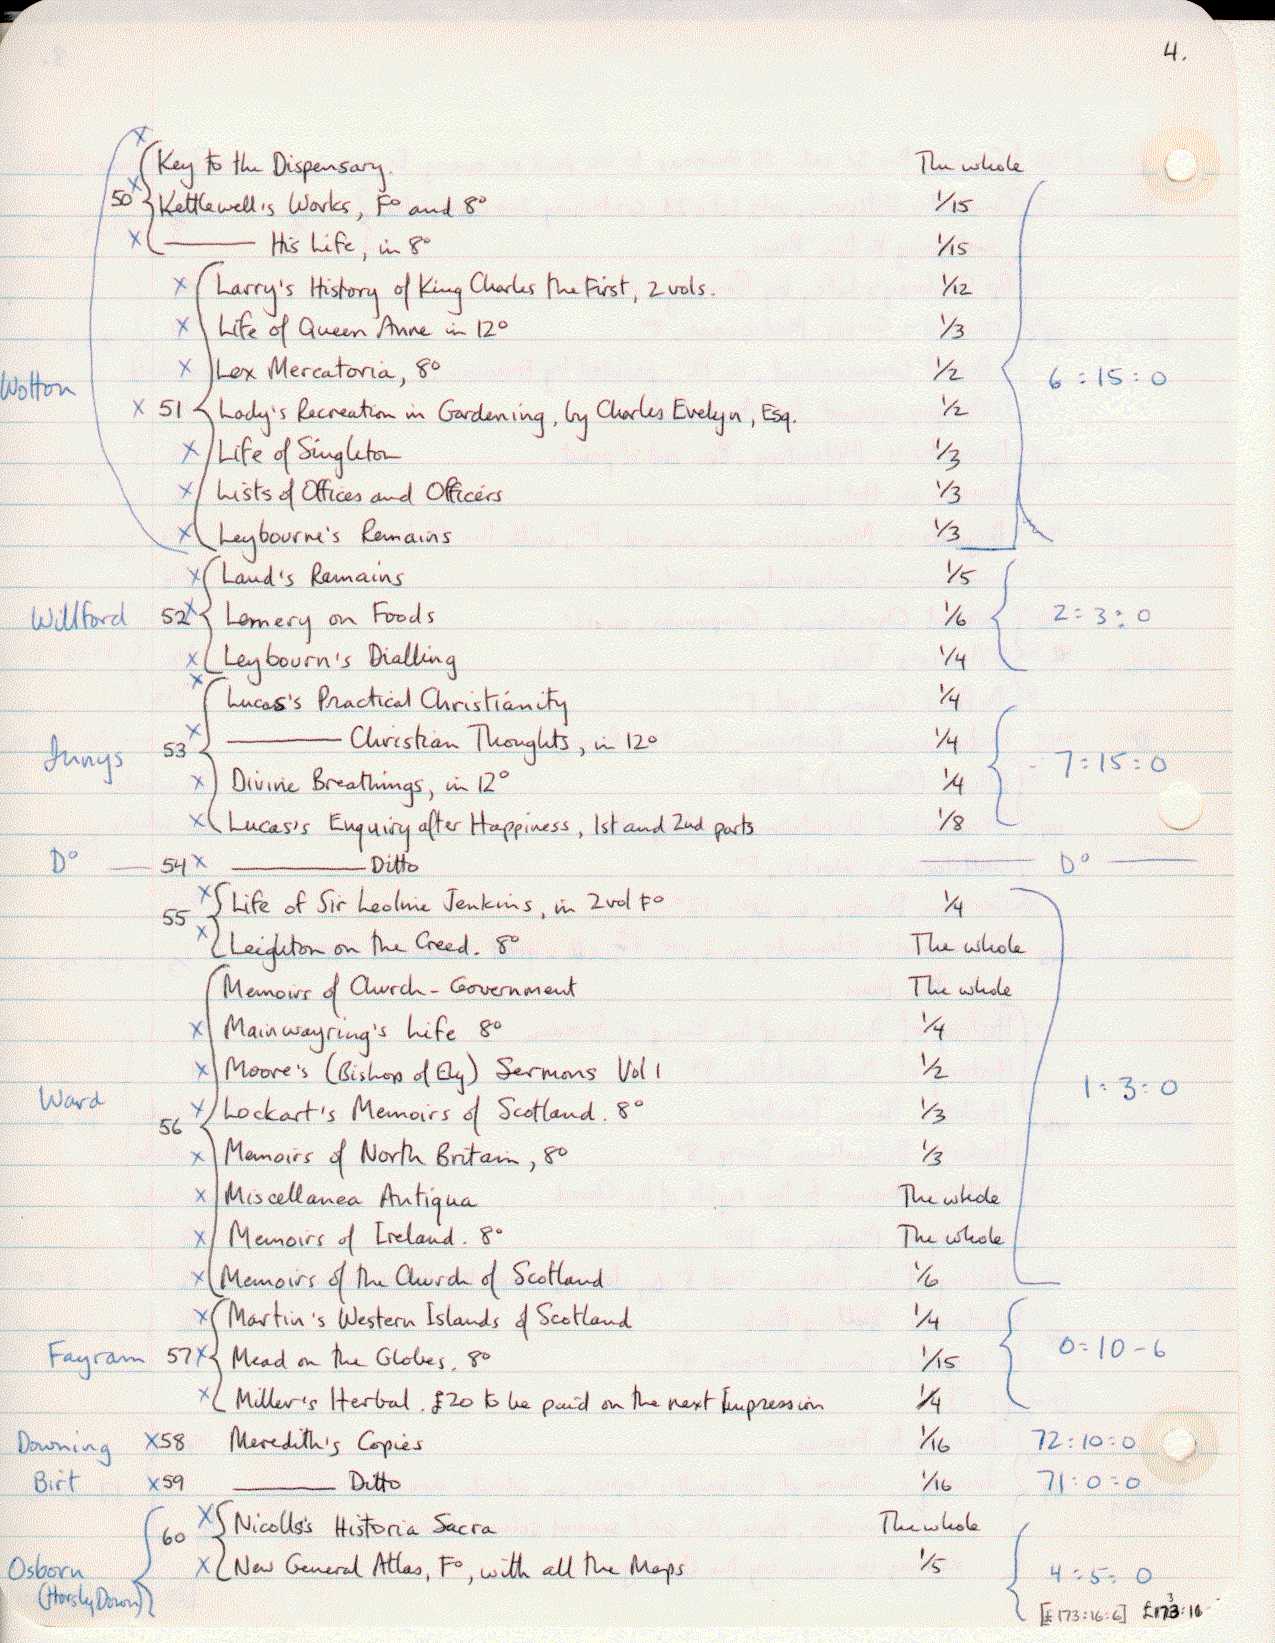 4.
x
Key to the Dispensary. The whole
x 50 Kettlewell's Works, Fo and 8o 1/15
x ——— His Life, in 8o 1/15
x Larry's History of King Charles the First, 2 vols. 1/12
x Life of Queen Anne in 12o 1/3
Wotton x Lex Mercatoria, 8o 1/2 6:15:0
x 51 Lady's Recreation in Gardening, by Charles Evelyn, Esq. 1/2
x Life of Singleton 1/3
x Lists of Offices and Officers 1/3
x Leybourne's Remains 1/3
x Laud's Remains 1/5
Willford 52 x Lemery on Foods 1/6 2:3:0
x Leybourn's Dialling 1/4
x Lucas's Practical Christianity 1/4
Innys 53 x ——— Christian Thoughts, in 12o 1/4 7:15:0
x Divine Breathings, in 12o 1/4
x Lucas's Enquiry after Happiness, 1st and 2nd parts 1/8
Do — 54 x ——— Ditto ——— Do ———
55 x Life of Sir Leoline Jenkins, in 2 vol Fo 1/4
x Leighton on the Creed. 8o The whole
Memoirs of Church-Government The whole
x Mainwayring's Life 8o 1/4
x Moore's (Bishop of Ely) Sermons Vol 1 1/2
Ward 56 x Lockart's Memoirs of Scotland. 8o 1/3 1:3:0
x Memoirs of North Britain, 8o 1/3
x Miscellanea Antiqua The whole
x Memoirs of Ireland. 8o The whole
x Memoirs of the Church of Scotland 1/6
x Martin's Western Islands of Scotland 1/4
Fayram 57 x Mead on the Globes. 8o 1/15 0:10-6
x Miller's Herbal. £20 to be paid on the next Impression 1/4
Downing x 58 Meredith's Copies 1/16 72:10:0
Birt x 59 ——— Ditto 1/16 71:0:0
60 x Nicolls's Historia Sacra The whole
Osborn x New General Atlas, Fo, with all the Maps 1/5 4:5:0
(Horsly Down) [£173:16:6]